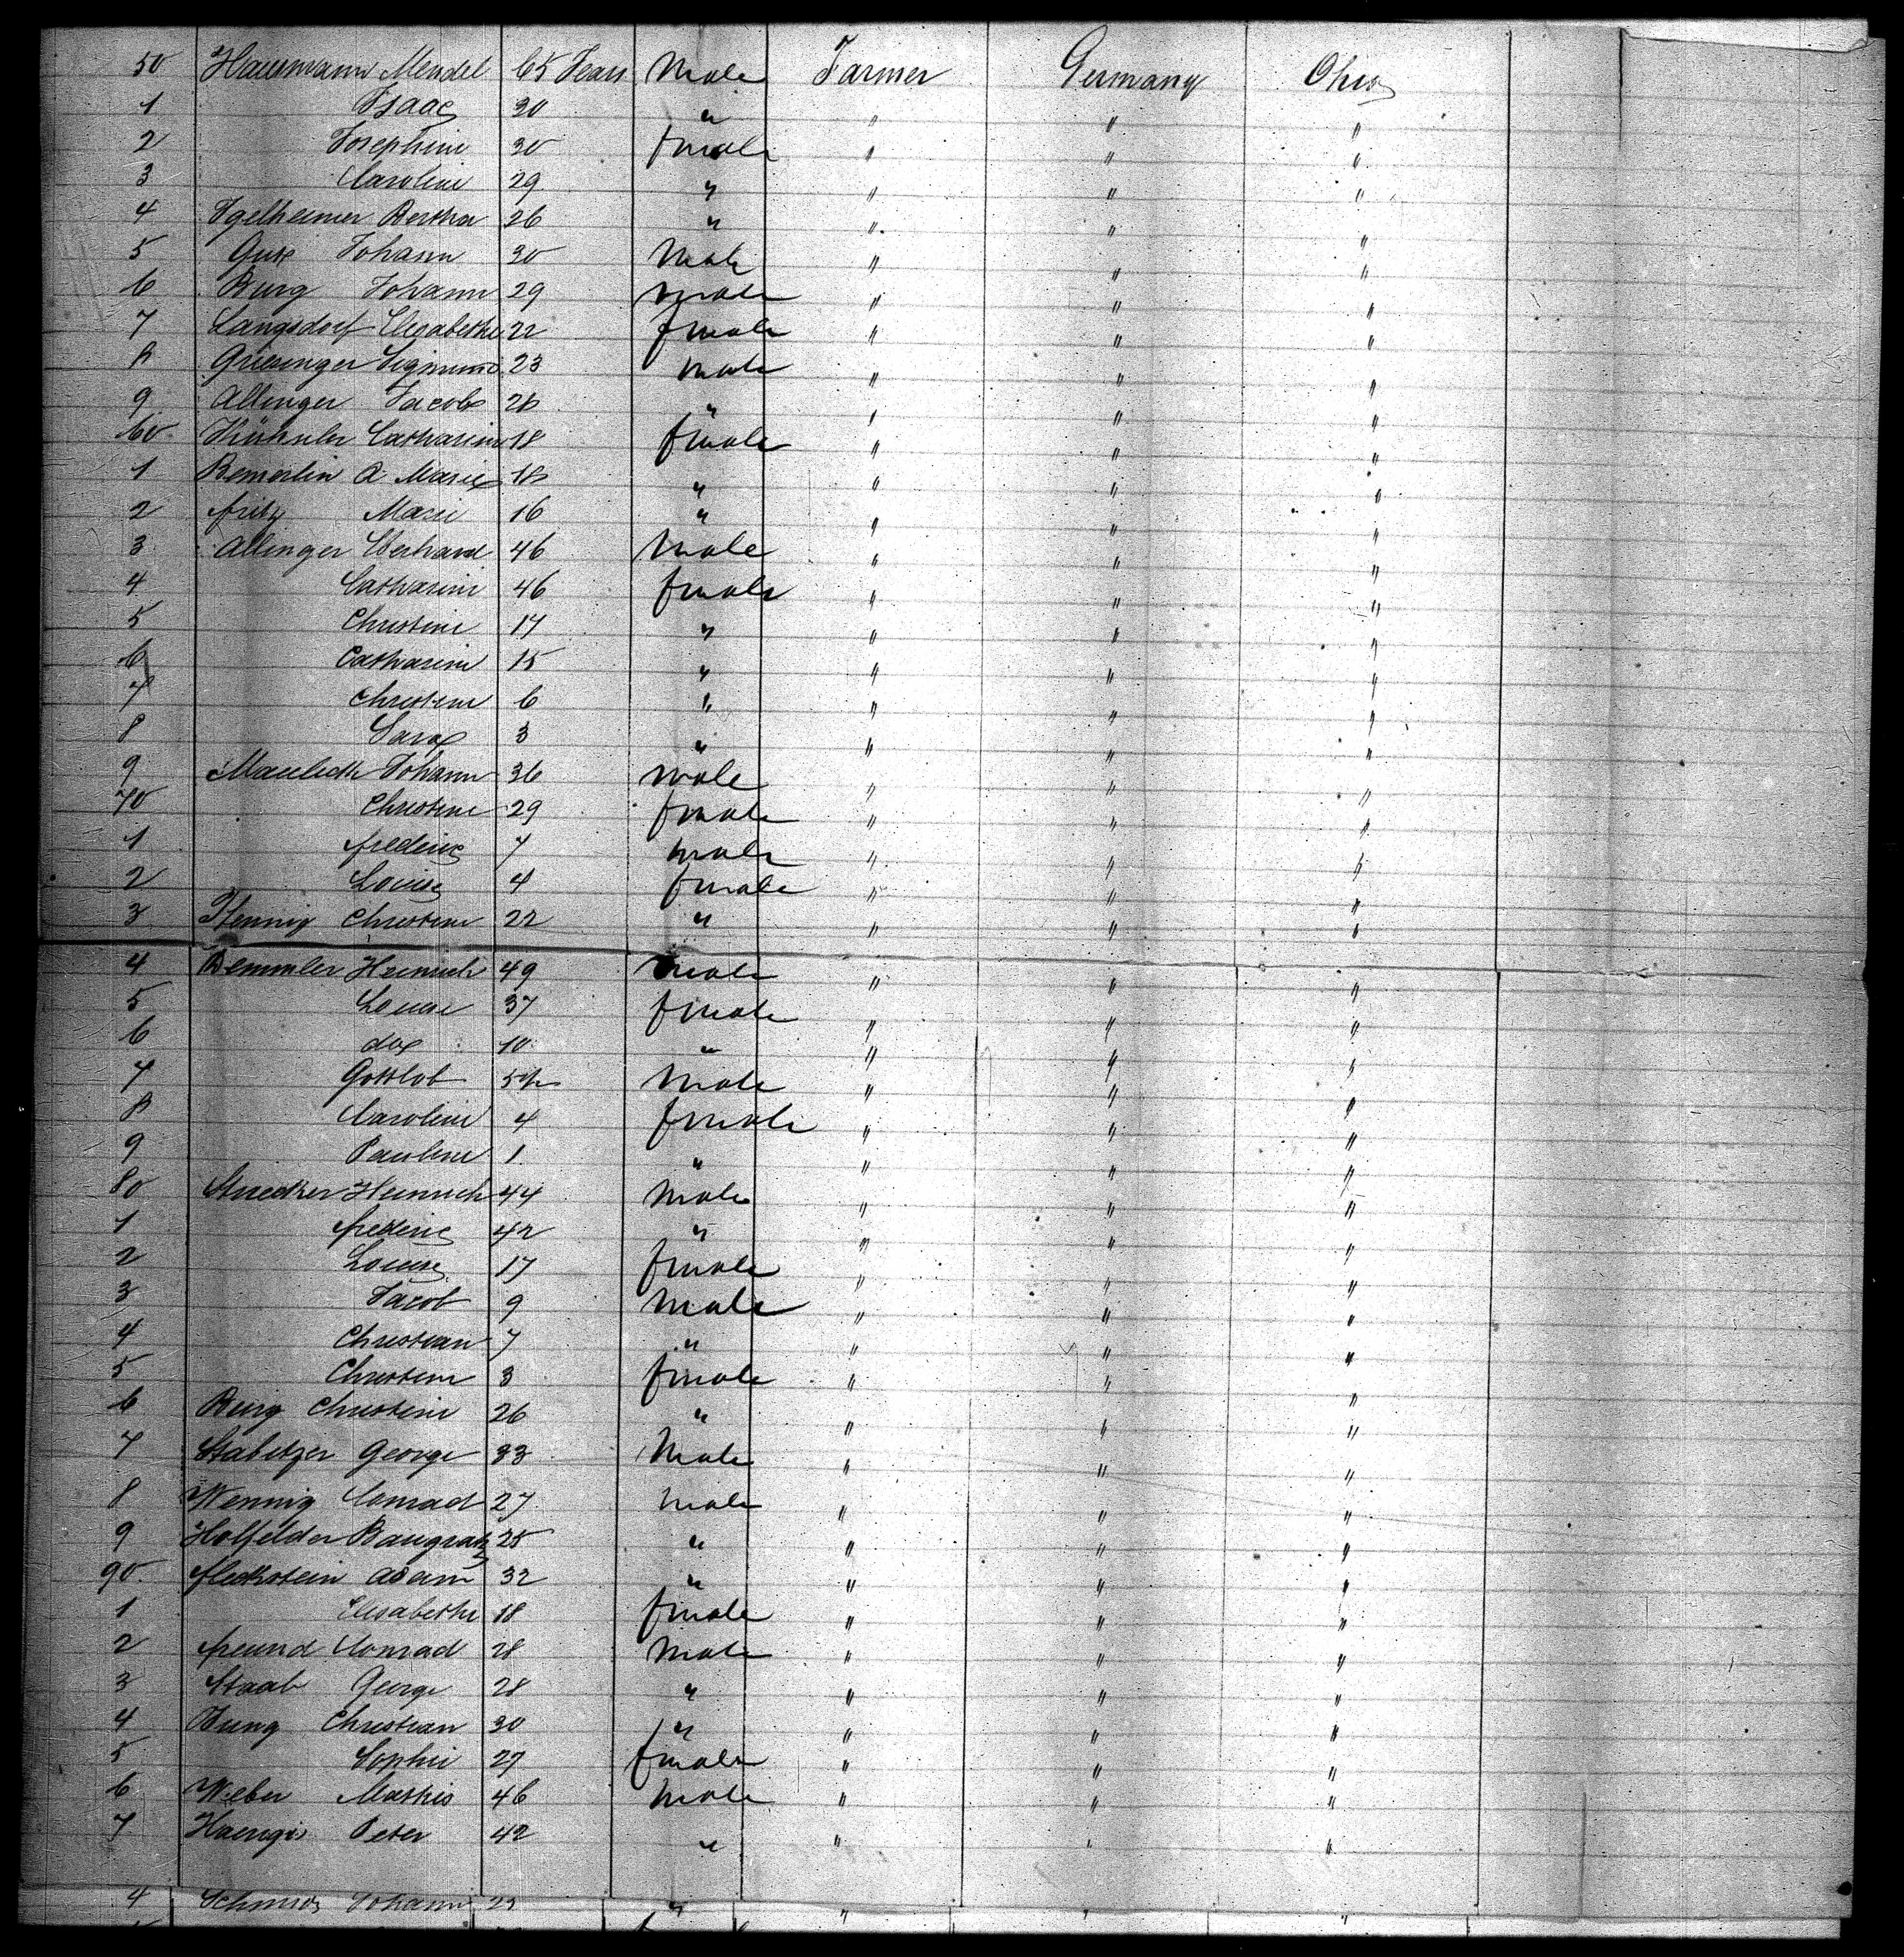 50 Hausmann Mendel 65 Years Male Farmer Germany Ohio
1 Isaac 30 " " " "
2 Josephine 30 female " " "
3 Caroline 29 " " " "
4 Igelheimer Bertha 26 " " " "
5 Johann 30 Male " " "
6 Burg Johann 29 male " " "
7 Langsdorf Elisabethe 22 female " " "
8 Griesinger Sigmund 23 male " " "
9 Allinger Jacob 26 " " " "
60 Catharine 18 female " " "
1 Bemerlin A. Marie 18 " " " "
2 fritz Marie 16 " " " "
3 Allinger Eberhard 46 Male " " "
4 Catharine 46 female " " "
5 Christine 17 " " " "
6 Catharine 15 " " " "
7 Christine 6 " " " "
8 Sara 3 " " " "
9 Johann 36 male " " "
70 Christine 29 female " " "
1 frederic 7 male " " "
2 Louise 4 female " " "
3 Pfennig Christine 22 " " " "
4 Bemmler Heinrich 49 male " " "
5 Louise 37 female " " "
6 do 10 " " " "
7 Gottlob 5 1/2 Male " " "
8 Caroline 4 female " " "
9 Pauline 1 " " " "
80 Heinrich 44 Male " " "
1 frederic 42 " " " "
2 Louise 17 female " " "
3 Jacob 9 Male " " "
4 Christian 7 " " " "
5 Christine 3 female " " "
6 Burg Christine 26 " " " "
7 Stabitzer George 33 Male " " "
8 Wennig Conrad 27 male " " "
9 Holfelder 25 " " " "
90 fleckstein Adam 32 " " " "
1 Elisabethe 18 female " " "
2 freund Conrad 28 Male " " "
3 Staab George 28 " " " "
4 Christian 30 " " " "
5 Sophie 27 female " " "
6 Weber Mathis 46 Male " " "
7 Peter 42 " " " "
4 Schmidt Johann 23 " " " "